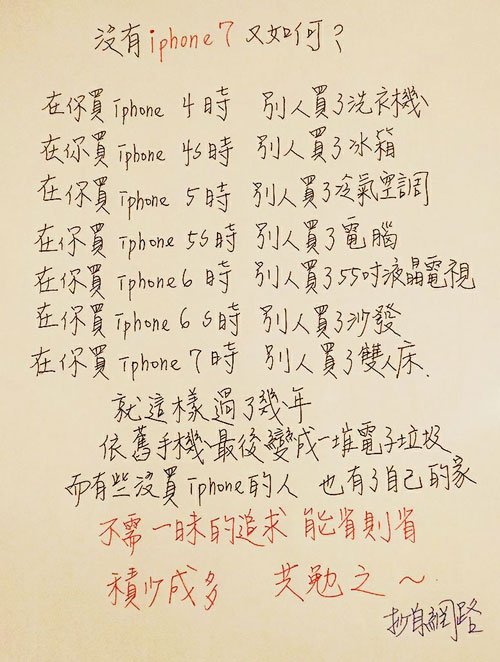 沒有iphone7 又如何?
在你買iphone 4時 別人買了洗衣機
在你買iphone 4s時 別人買了冰箱
在你買iphone 5時 別人買了冷氣空調
在你買iphone 5s時 別人買了電腦
在你買iphone6時 別人買了55吋液晶電視
在你買iphone 6s時 別人買了沙發
在你買iphone 7時 別人買了雙人床.
就這樣過了幾年
依舊手機最後變成一堆電子垃圾
而有些沒買iphone的人 也有了自己的家
不需一昧的追求 能省則省
積少成多 共勉之~
抄自網路